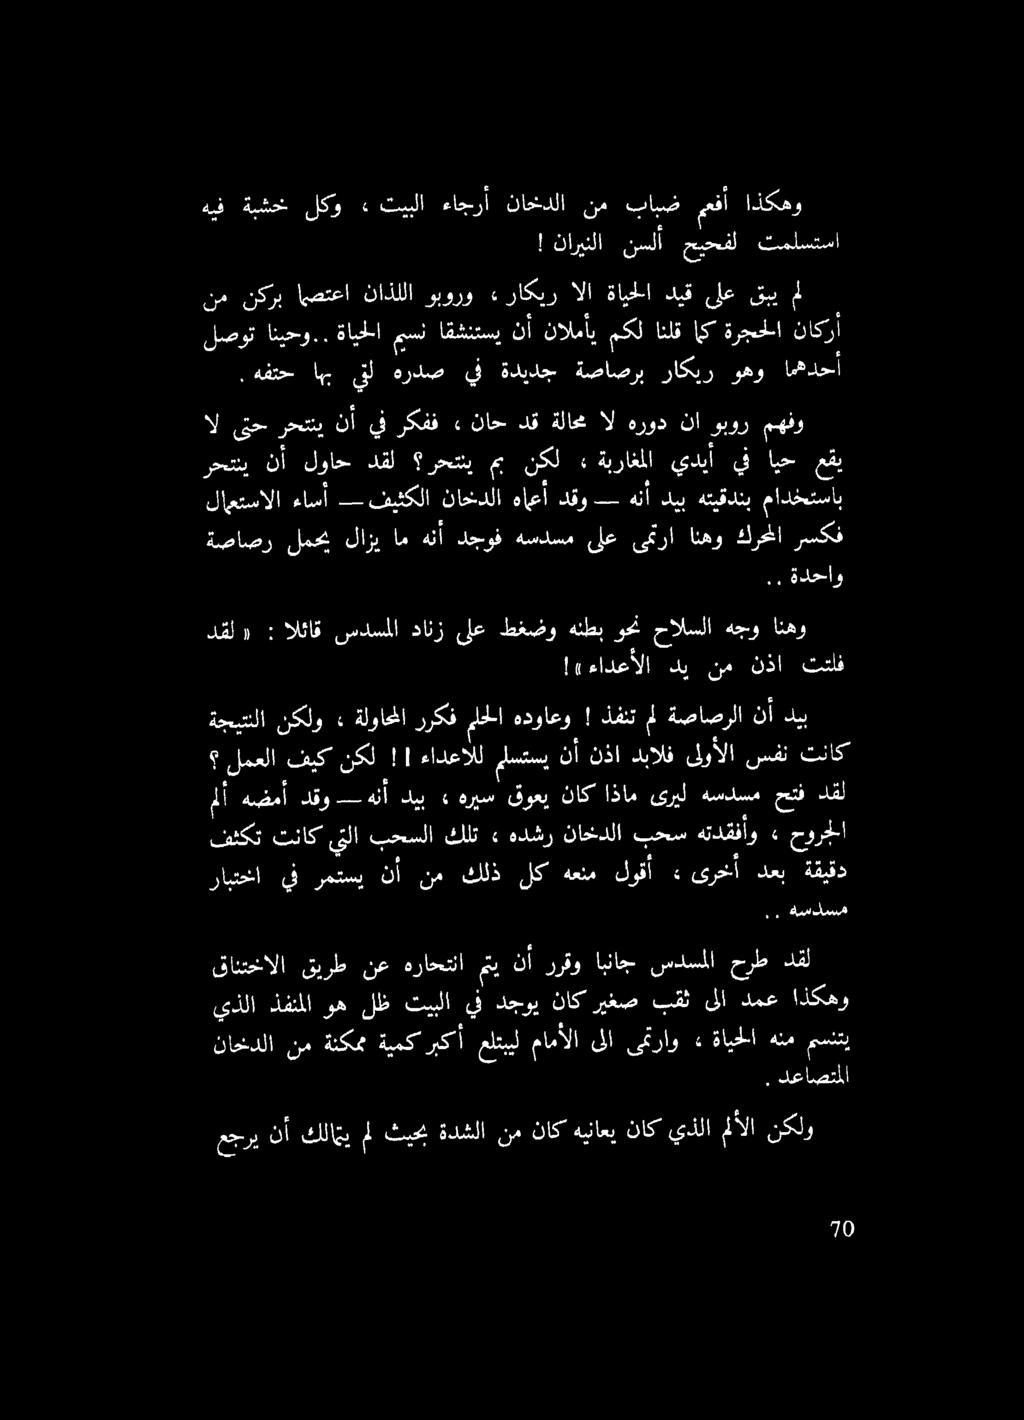 وهكذا أفعم ضباب من الدخان أرجاء البيت ، وكل خشبة فيه
استسلمت لفحيح ألسن النيران !
لم يبق على قيد الحياة الا ريكار ، وروبو اللذان اعتصما بركن من
أركان الحجرة كما قلنا لكم يأملان أن يستنشقا نسيم الحياة . . وحينا توصل
أحدهما وهو ريكار برصاصة جديدة في صدره لقي بها حتفه .
وفهم روبو ان دوره لا محالة قد حان ، ففكر في أن ينتحر حتى لا
يقع حيا في أيدي المغاربة ، لكن بم ينتحر ؟ لقد حاول أن ينتحر
باستخدام بندقيته بيد أنه — وقد أعماه الدخان الكثيف — أساء الاستعمال
فكسر المحرك وهنا ارتمى على مسدسه فوجد أنه ما يزال يحمل رصاصة
واحدة . .
وهنا وجه السلاح نحو بطنه وضغط على زناد المسدس قائلا : « لقد
فلتت اذن من يد الأعداء » !
بيد أن الرصاصة لم تنفذ ! وعاوده الحلم فكرر المحاولة ، ولكن النتيجة
كانت نفس الأولى فلابد اذن أن يستسلم للاعداء !! لكن كيف العمل ؟
لقد فتح مسدسه ليرى ماذا كان يعوق سيره ، بيد أنه — وقد أمضه ألم
الجروح ، وأفقدته سحب الدخان رشده ، تلك السحب التي كانت تكثف
دقيقة بعد أخرى ، أقول منعه كل ذلك من أن يستمر في اختبار
مسدسه . .
لقد طرح المسدس جانبا وقرر أن يتم انتحاره عن طريق الاختناق
وهكذا عمد الى ثقب صغير كان يوجد في البيت ظل هو المنفذ الذي
يتنسم منه الحياة ، وارتمى الى الأمام ليبتلع أكبر كمية ممكنة من الدخان
المتصاعد .
ولكن الألم الذي كان يعانيه كان من الشدة بحيث لم يتمالك أن يرجع
70